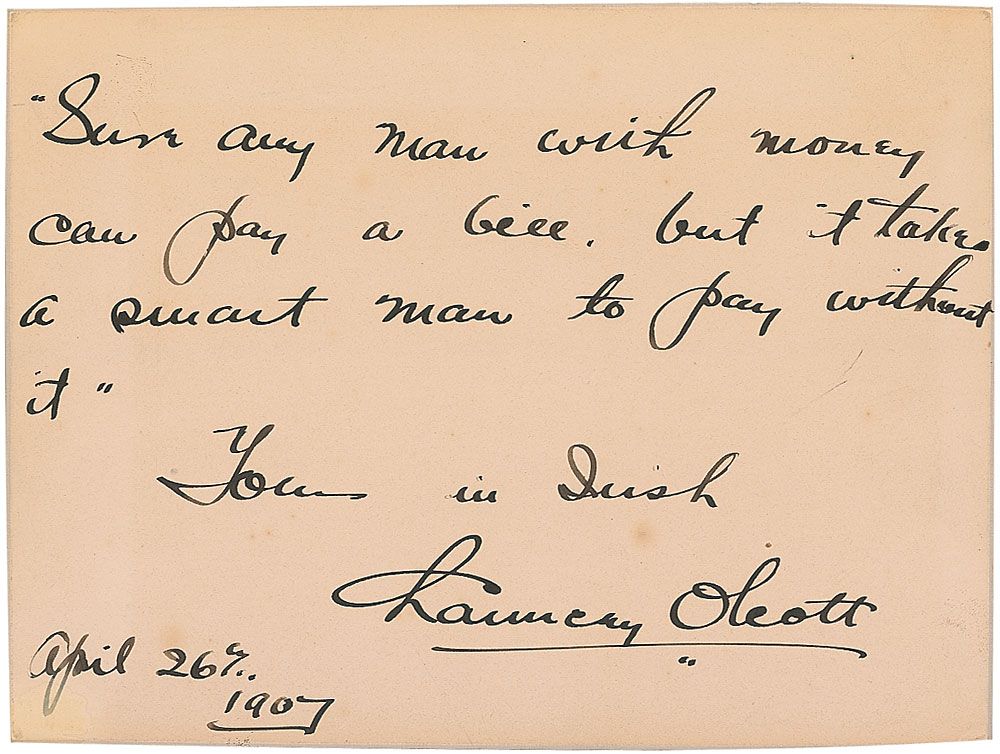 "Sure any man with money
can pay a bill. but it takes
a smart man to pay without
it"
Yours in Irish
Chauncey Olcott
April 26th.
1907